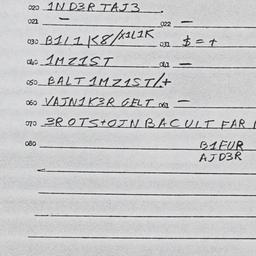 020 1ND3R TAJ3
021 —
022 —
030 B1/1 K8/X1L1K
031 $ = +
040 1MZ1ST
041 —
050 BALT 1MZ1ST/+
060 VAJN1K3R GELT
061 —
070 3ROTS+OJN BACULT FAR
080
B1FUR
AJD3R